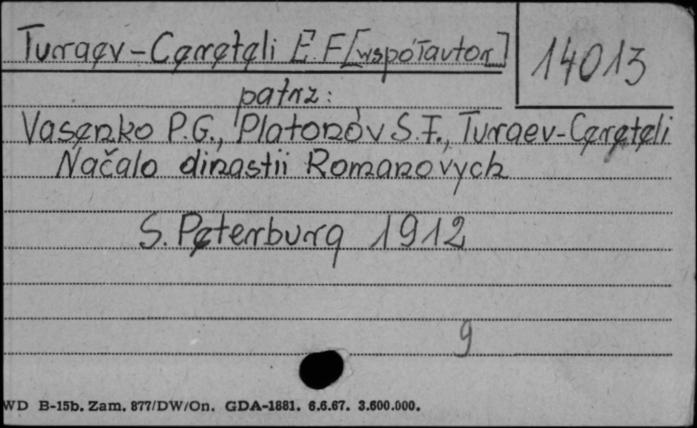 Turaev-Cereteli E.F[współautor]
14013
patrz:
Vasenko P.G., Platonov S.F., Turaev-Cereteli
Načalo dinastii Romanovych
S. Peterburg 1912
9
WD B-15b. Zam. 877/DW/On. GDA-1881. 6.6.67. 3.600.000.